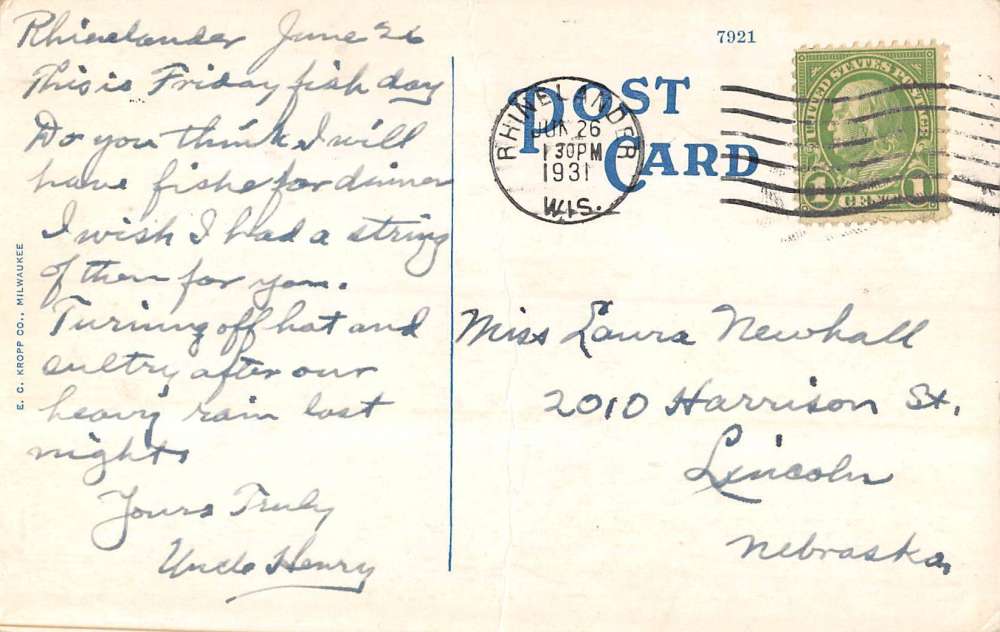 Rhinelander June 26
This is Friday fish day
Do you think I will
have fishe for dinner
I wish I had a string
of them for you.
Turning off hot and
sultry after our
heavy rain last
night
Yours Truly
Uncle Henry
E. C. KROPP CO., MILWAUKEE
7921
POST
CARD
RHINELANDER
JUN 26
1 30PM
1931
WIS.
UNITED STATES POSTAGE
1 CENT 1
Miss Laura Newhall
2010 Harrison St.
Lincoln
Nebraska